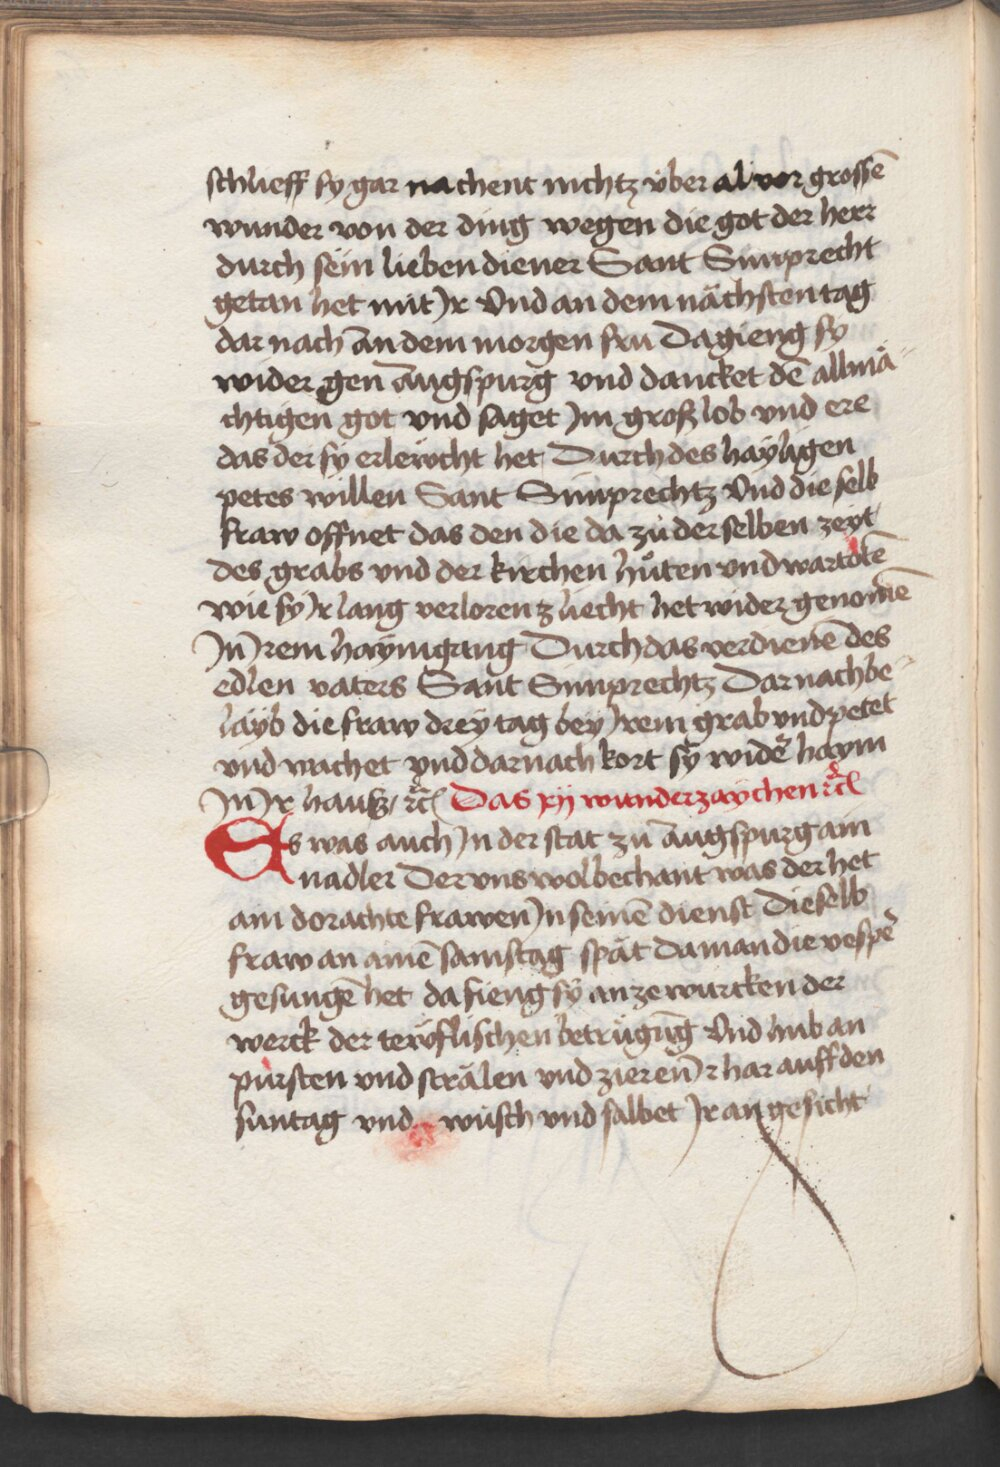 schlieff sy gar nachent nichtz über al vor grossē
wunder von der ding wegen die got der herr
durch sein lieben diener Sant Simprecht
getan het mit Jr Vnd an dem nächsten tag
dar nach an dem morgen fru Da gieng sy
wider gen augspurg vnd dancket dē allmä
chtigen got vnd saget Jm groß lob vnd ere
das der sy erlewcht het Durch des hayligen
petes willen Sant Simprechtz Vnd die selb
fraw offnet das den die da zu der selben zeyt
des grabs vnd der kirchen hůten vnd wartotē
wie sy Jr lang verlorentz liecht het wider genomē
Jn Jrem haymgang Durch das verdienē des
edlen vaters Sant Simprechtz Dar nach be
layb die fraw drey tag bey Jrem grab vnd petet
vnd wachet vnd darnach kort sy wider haym
Jn Jr hauß / rc̄ Das xij wunderzaychen rc̄
Es was auch Jn der stat zu augspurg ain
nadler Der vns wol bechant was der het
ain dorachte frawen Jn seinē dienst Dieselb
fraw an ainē samstag spät da man die vesper
gesungē het da fieng sy an ze wurcken der
werck der tewflischen betrugūg Vnd hub an
pürsten vnd strälen vnd zieren Jr har auff den
suntag vnd wusch vnd salbet Jr angesicht